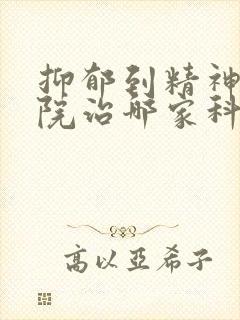 抑郁到精神
院治哪家科
高以亞希子